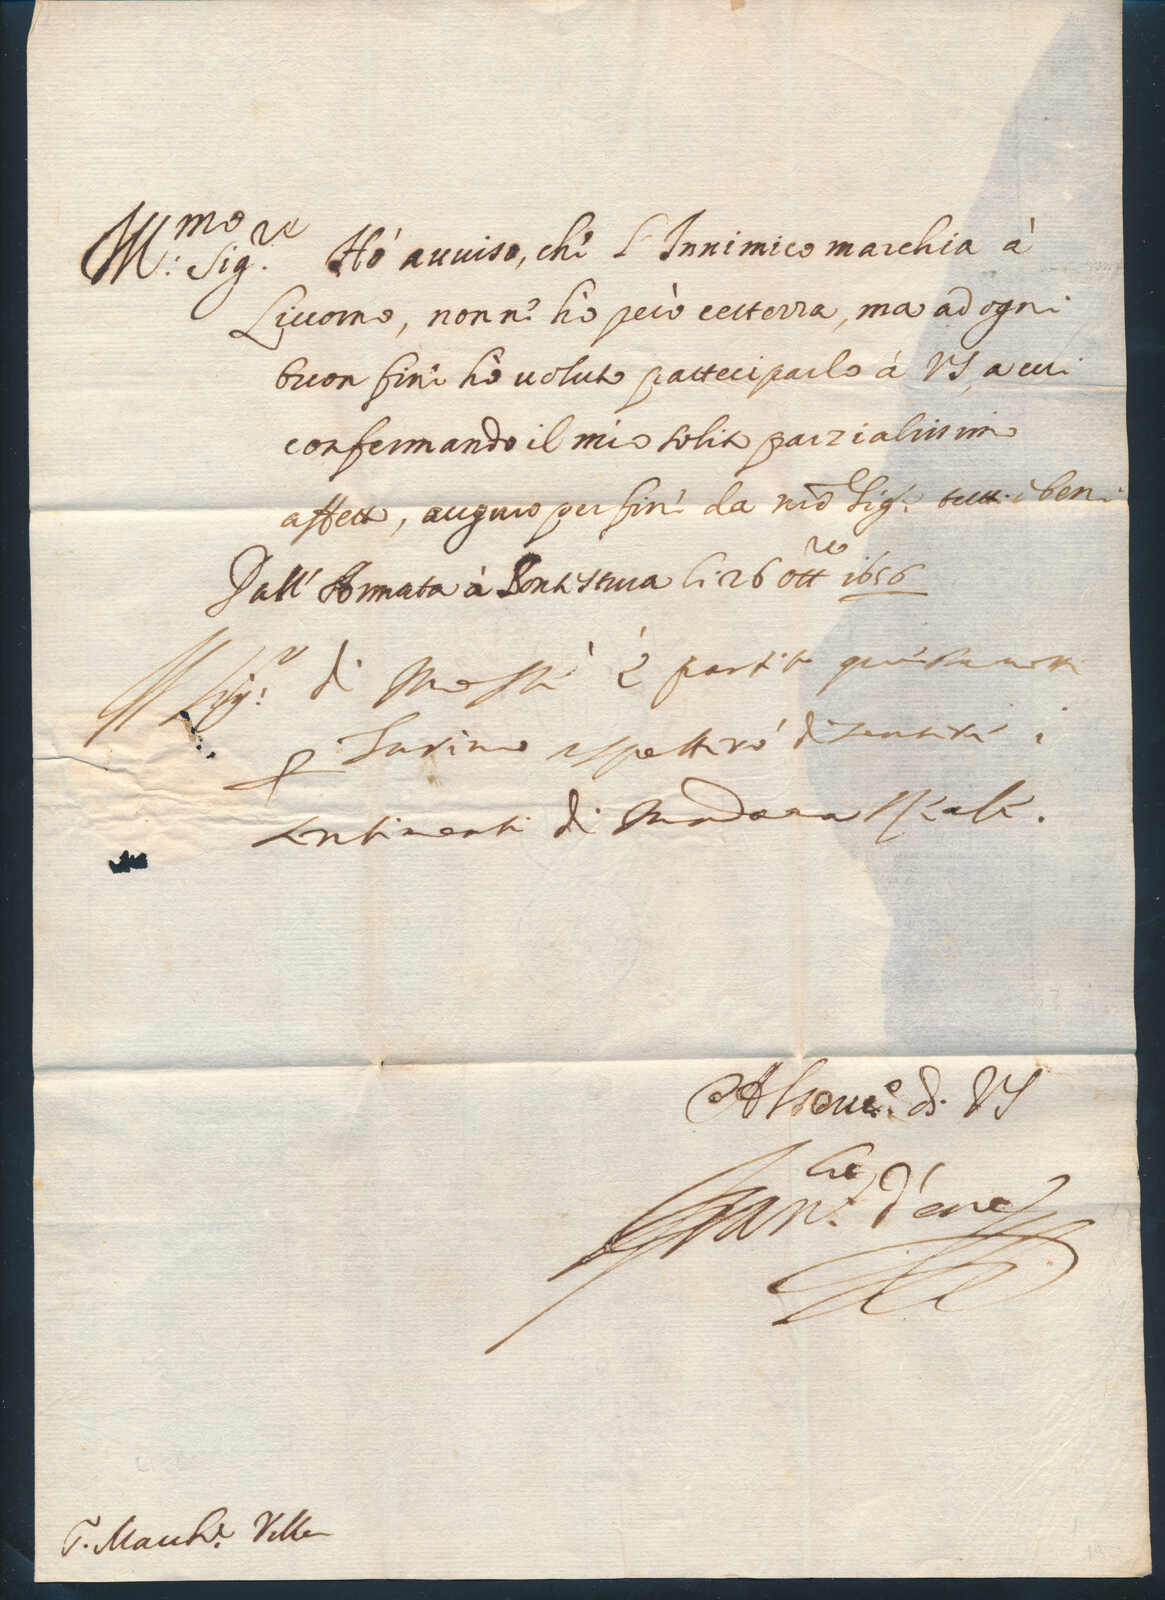 Ill.mo Sig.re Hò auuiso, che l'Innimico marchia à
Liuorno, non n'hò però certezza, ma ad ogni
buon fine hò uoluto parteciparlo à VS, a cui
confermando il mio solito parzialissimo
affetto, auguro per fine da N.ro Sig.re tutti i beni
Dall'Armata à Pontestura li 26 Ott.re 1656
Il Sig.r di è partito questa
per Turino aspetterò di sentire i
sentimenti di Madama Reale.
Al ser.o di VS
Fran.co d'Este
S. March.e Villa